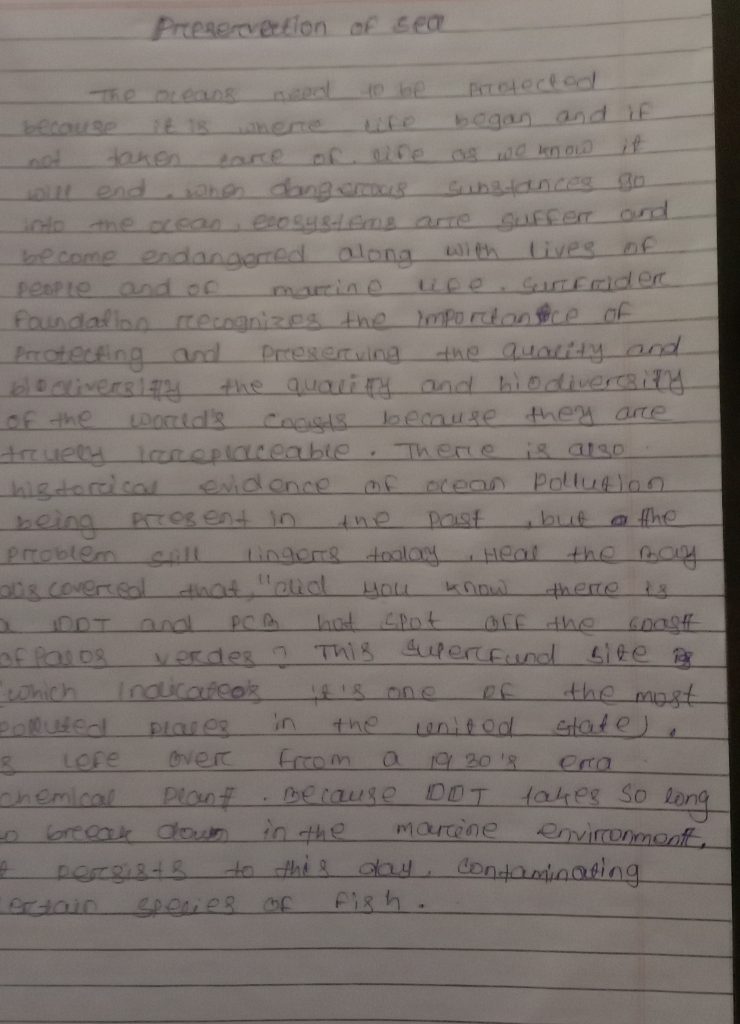 Preservertion of sea
The oceans need to be protected
because it is where life began and if
not taken care of. life as we know it
will end. when dangerous substances go
into the ocean, ecosystems are suffer and
become endangered along with lives of
people and of marine life. Surfrider
foundation recognizes the importance of
protecting and preserving the quality and
biodiversity the quality and biodiversity
of the world's coasts because they are
truely irreplaceable. There is also
historical evidence of ocean pollution
being present in the past, but the
problem still lingers today. Heal the Bay
discovered that, "did you know there is
a DDT and PCB hot spot off the coast
of Palos verdes? This superfund site is
(which indicates it's one of the most
polluted places in the united state),
is left over from a 1930's era
chemical plant. Because DDT takes so long
to break down in the marine environment,
it persists to this day, contaminating
certain species of fish.